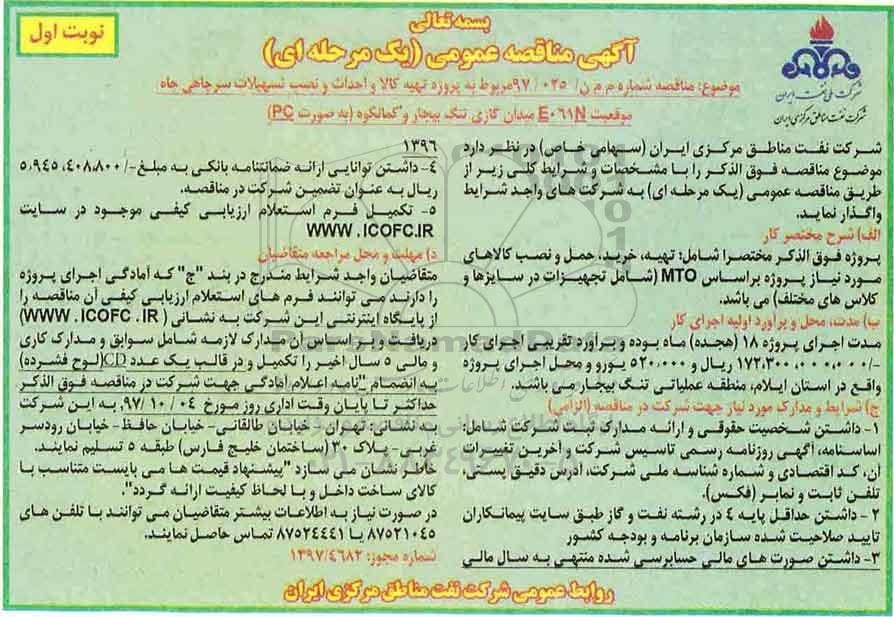 بسمه تعالی
نوبت اول
آگهی مناقصه عمومی (یک مرحله ای)
موضوع: مناقصه شماره م م ن/ ۰۲۵/ ۹۷مربوط به پروژه تهیه کالا و احداث و نصب تسهیلات سرچاهی چاه
موقعیت E۰۶۱N میدان گازی تنگ بیجار و کمانکوه (به صورت PC)
شرکت ملی نفت ایران
شرکت نفت مناطق مرکزی ایران
شرکت نفت مناطق مرکزی ایران (سهامی خاص) در نظر دارد
موضوع مناقصه فوق الذکر را با مشخصات و شرایط کلی زیر از
طریق مناقصه عمومی (یک مرحله ای) به شرکت های واجد شرایط
واگذار نماید.
الف) شرح مختصر کار
پروژه فوق الذکر مختصرا شامل: تهیه، خرید، حمل و نصب کالاهای
مورد نیاز پروژه براساس MTO (شامل تجهیزات در سایزها و
کلاس های مختلف) می باشد.
ب) مدت، محل و برآورد اولیه اجرای کار
مدت اجرای پروژه ۱۸ (هجده) ماه بوده و برآورد تقریبی اجرای کار
-/۱۷۲،۳۰۰،۰۰۰،۰۰۰ ریال و ۵۲۰،۰۰۰ یورو و محل اجرای پروژه
واقع در استان ایلام، منطقه عملیاتی تنگ بیجار می باشد.
ج) شرایط و مدارک مورد نیاز جهت شرکت در مناقصه (الزامی)
۱- داشتن شخصیت حقوقی و ارائه مدارک ثبت شرکت شامل:
اساسنامه، آگهی روزنامه رسمی تاسیس شرکت و آخرین تغییرات
آن، کد اقتصادی و شماره شناسه ملی شرکت، آدرس دقیق پستی،
تلفن ثابت و نمابر (فکس).
۲- داشتن حداقل پایه ۴ در رشته نفت و گاز طبق سایت پیمانکاران
تایید صلاحیت شده سازمان برنامه و بودجه کشور
۳- داشتن صورت های مالی حسابرسی شده منتهی به سال مالی
۱۳۹۶
۴- داشتن توانایی ارائه ضمانتنامه بانکی به مبلغ-/۵،۹۴۵،۴۰۸،۸۰۰
ریال به عنوان تضمین شرکت در مناقصه.
۵- تکمیل فرم استعلام ارزیابی کیفی موجود در سایت
WWW . ICOFC.IR
د) مهلت و محل مراجعه متقاضیان
متقاضیان واجد شرایط مندرج در بند "ج" که آمادگی اجرای پروژه
را دارند می توانند فرم های استعلام ارزیابی کیفی آن مناقصه را
از پایگاه اینترنتی این شرکت به نشانی ( WWW . ICOFC . IR)
دریافت و بر اساس آن مدارک لازمه شامل سوابق و مدارک کاری
و مالی ۵ سال اخیر را تکمیل و در قالب یک عدد CD(لوح فشرده)
به انضمام "نامه اعلام آمادگی جهت شرکت در مناقصه فوق الذکر
حداکثر تا پایان وقت اداری روز مورخ ۰۴ /۱۰ /۹۷، به این شرکت
به نشانی: تهران- خیابان طالقانی- خیابان حافظ- خیابان رودسر
غربی- پلاک ۳۰ (ساختمان خلیج فارس) طبقه ۵ تسلیم نمایند.
خاطر نشان می سازد "پیشنهاد قیمت ها می بایست متناسب با
کالای ساخت داخل و با لحاظ کیفیت ارائه گردد".
در صورت نیاز به اطلاعات بیشتر متقاضیان می توانند با تلفن های
۸۷۵۲۱۰۴۵ یا ۸۷۵۲۴۴۴۱ تماس حاصل نمایند.
شماره مجوز: ۱۳۹۷/۴۶۸۲
روابط عمومی شرکت نفت مناطق مرکزی ایران